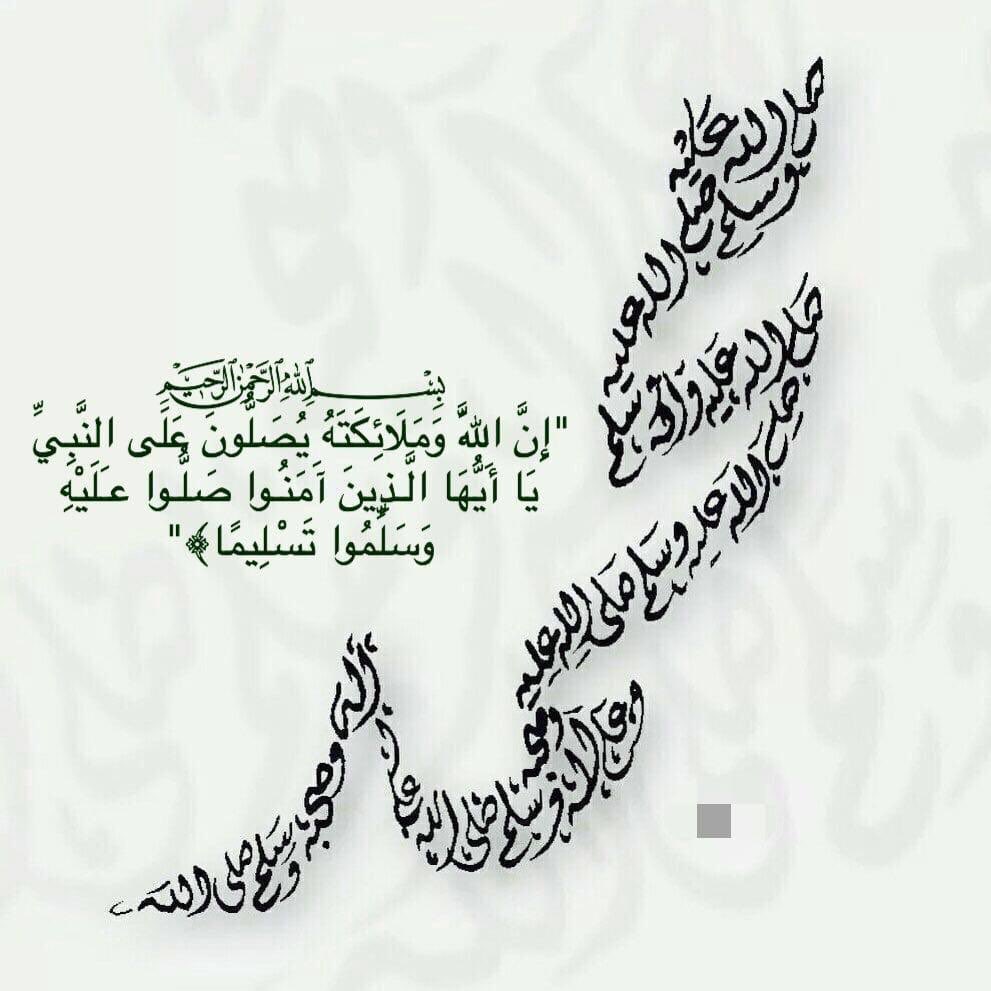 صلى الله عليه
وسلم
صلى الله عليه
وسلم
صلى الله عليه وآله
صلى الله عليه وسلم صلى الله عليه
وصحبه
وعلى آله وسلم صلى الله عليه
آله وصحبه وسلم صلى الله
بسم الله الرحمن الرحيم
"إِنَّ اللَّهَ وَمَلَائِكَتَهُ يُصَلُّونَ عَلَى النَّبِيِّ
يَا أَيُّهَا الَّذِينَ آَمَنُوا صَلُّوا عَلَيْهِ
وَسَلِّمُوا تَسْلِيمًا﴾"